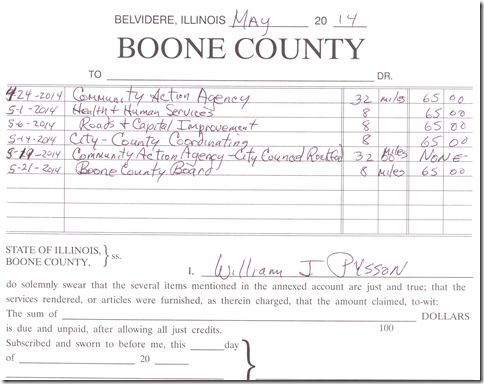 BELVIDERE, ILLINOIS May 20 14
BOONE COUNTY
TO DR.
4-24-2014 Community Action Agency 32 miles 65 00
5-1-2014 Health & Human Services 8 65 00
5-6-2014 Roads & Capital Improvement 8 65 00
5-14-2014 City-County Coordinating 8 65 00
5-19-2014 Community Action Agency-City Council Rockford 32 miles NONE
5-21-2014 Boone County Board 8 miles 65 00
STATE OF ILLINOIS, } ss.
BOONE COUNTY,
I, William J Pysson
do solemnly swear that the several items mentioned in the annexed account are just and true; that the
services rendered, or articles were furnished, as therein charged, that the amount claimed, to-wit:
The sum of DOLLARS
100
is due and unpaid, after allowing all just credits.
Subscribed and sworn to before me, this day
of 20